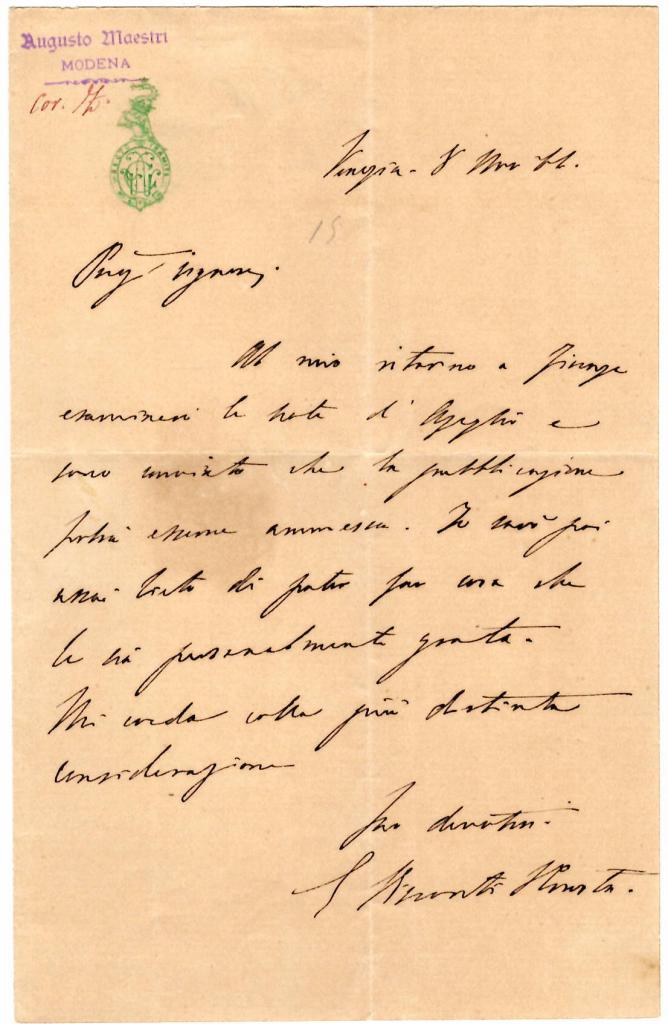 Augusto Maestri
MODENA
Cor.
Venezia. 8 Nov 66.
15
Preg. Signore,
Al mio ritorno a Firenze
esaminerò le note d'Azeglio e
sono convinto che la pubblicazione
potrà essere ammessa. Io sarò poi
assai lieto di poter far cosa che
le sia personalmente grata.
Mi creda colla più distinta
considerazione
Suo devotiss.
E Visconti Venosta.